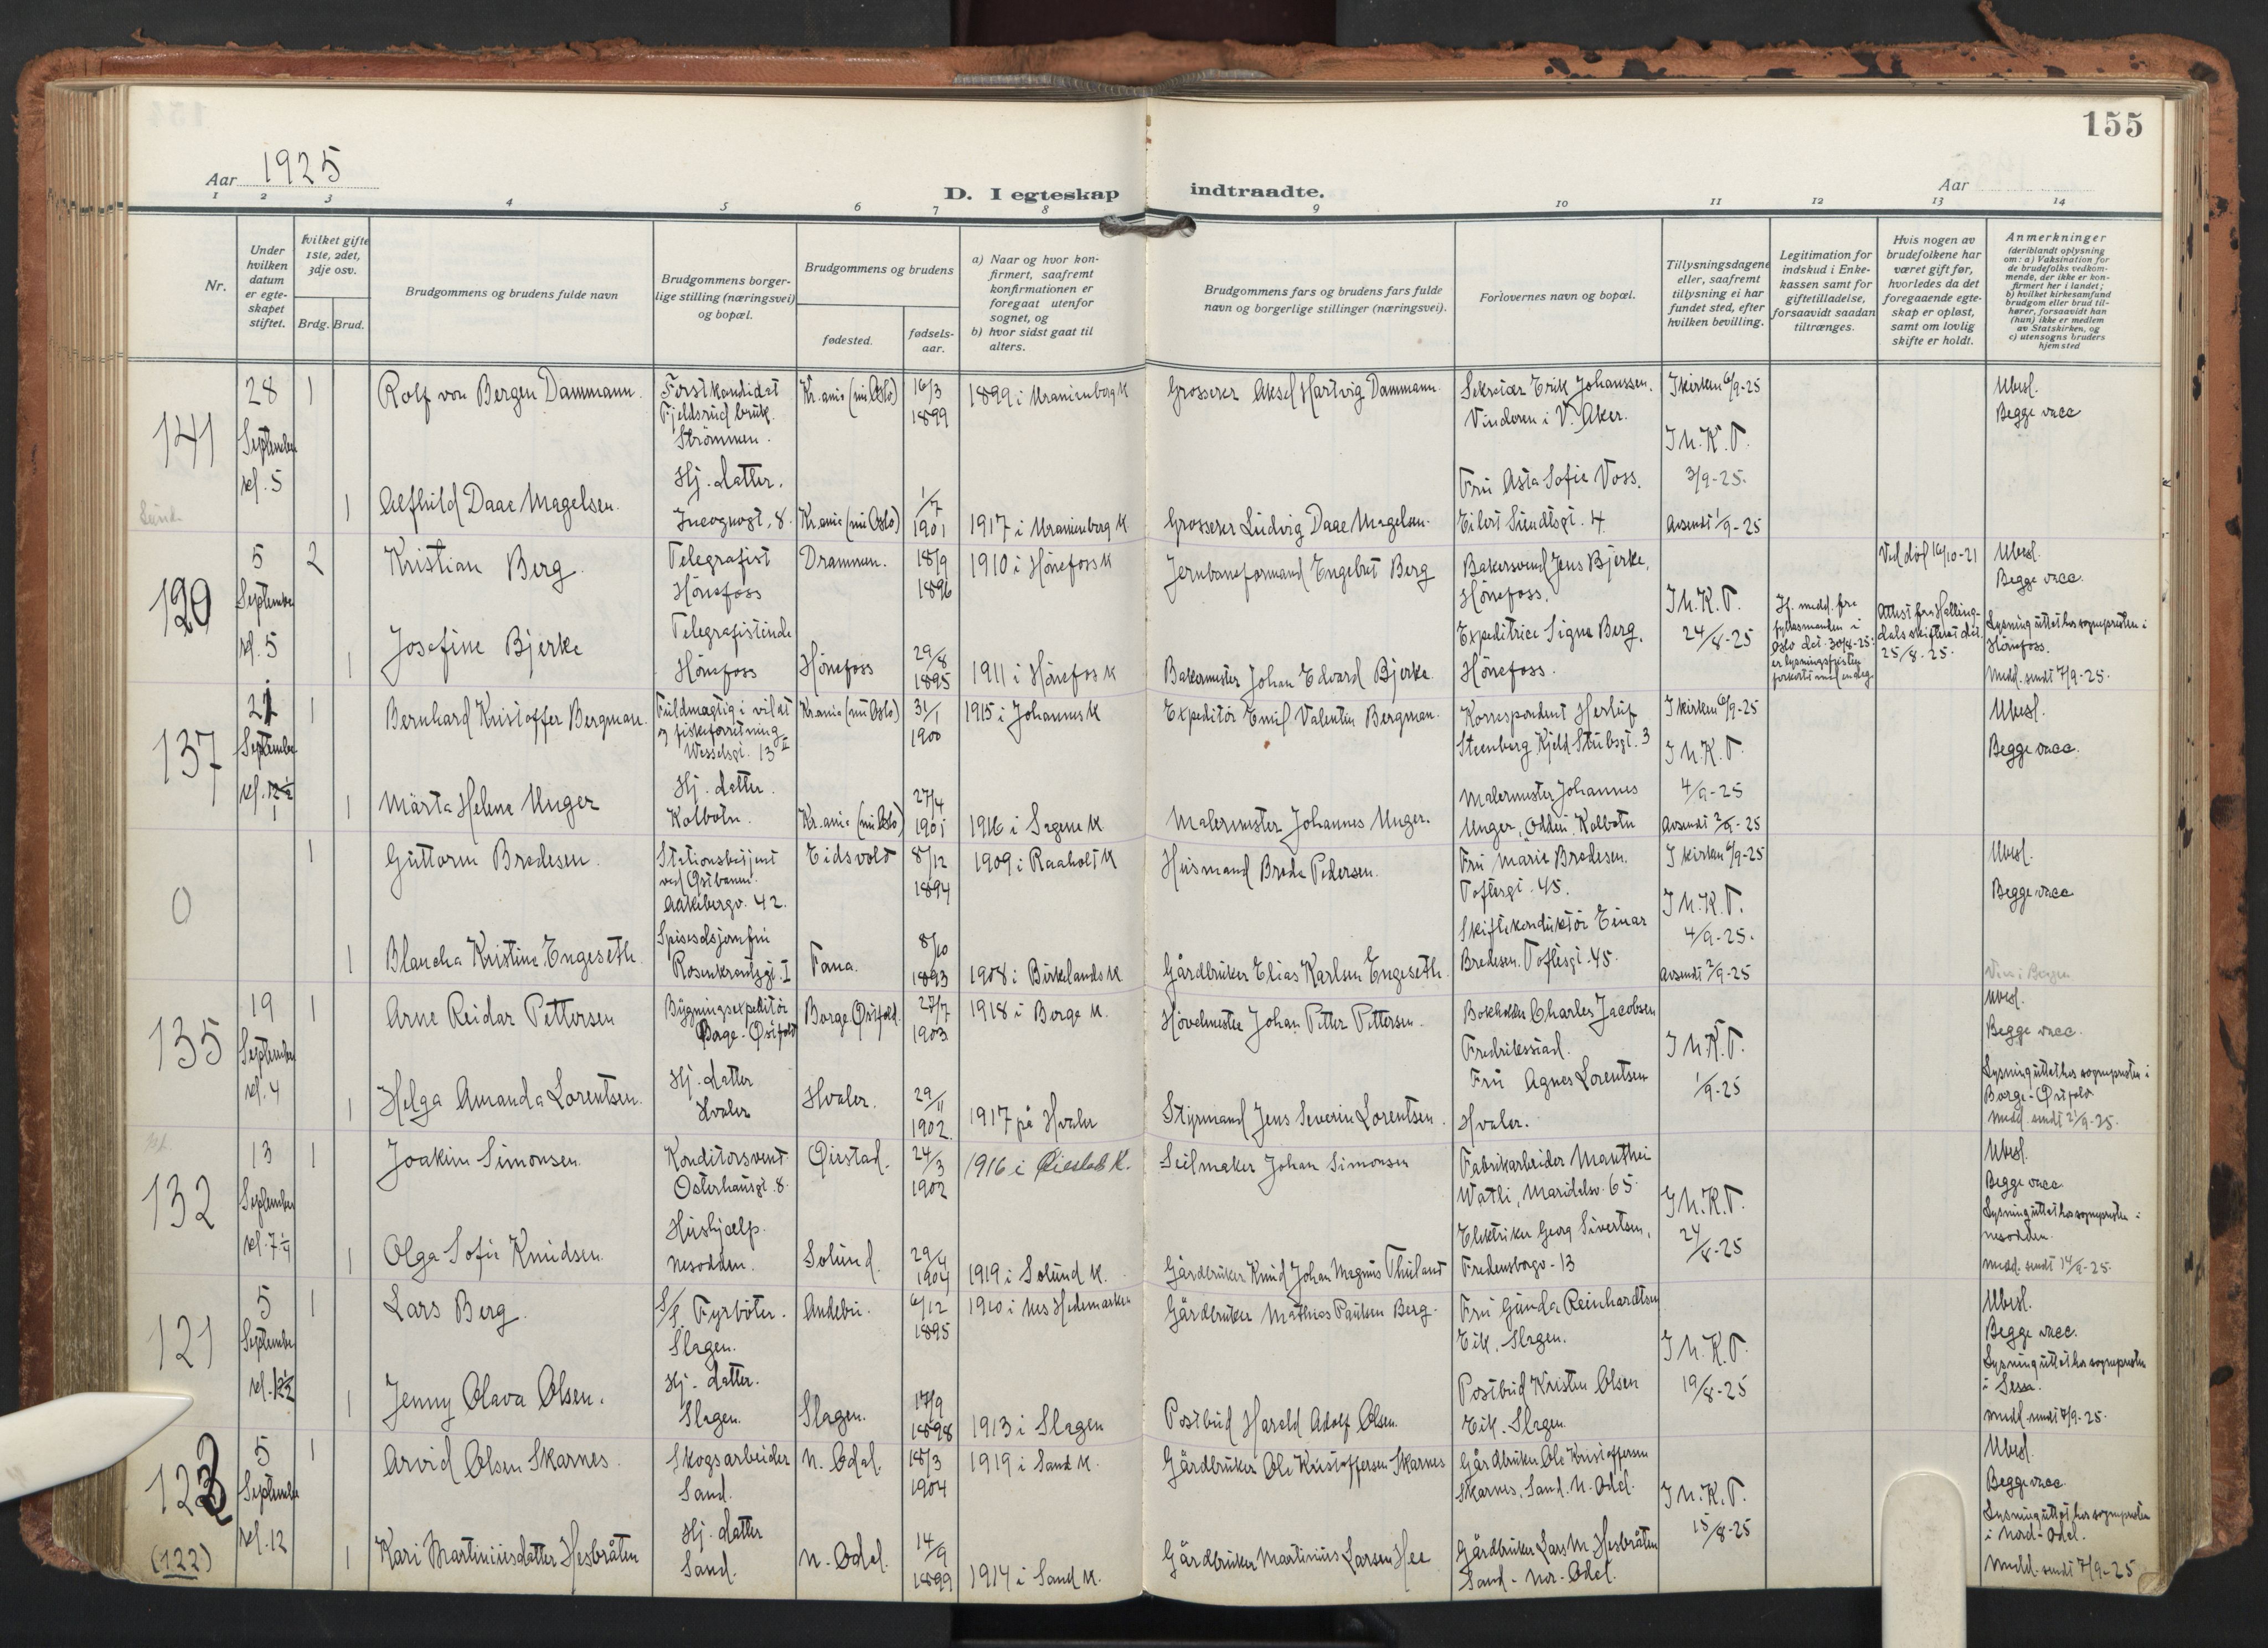 155
Aar 1925
D. I egteskap indtraadte.
Aar
1 2 3 4 5 6 7 8 9 10 11 12 13 14
Nr.
Under hvilken datum er egteskapet stiftet.
Hvilket gifte 1ste, 2det, 3dje osv.
Brdg. Brud.
Brudgommens og brudens fulde navn
Brudgommens borgerlige stilling (næringsvei) og bopæl.
Brudgommens og brudens
fødested.
fødselsaar.
a) Naar og hvor konfirmert, saafremt konfirmationen er foregaat utenfor sognet, og
b) hvor sidst gaat til alters.
Brudgommens fars og brudens fars fulde navn og borgerlige stillinger (næringsvei).
Forlovernes navn og bopæl.
Tillysningsdagene eller, saafremt tillysning ei har fundet sted, efter hvilken bevilling.
Legitimation for indskud i Enkekassen samt for giftetilladelse, forsaavidt saadan tiltrænges.
Hvis nogen av brudefolkene har været gift før, hvorledes da det foregaaende egteskap er opløst, samt om lovlig skifte er holdt.
Anmerkninger (deriblandt oplysning om: a) Vaksination for de brudefolks vedkommende, der ikke er konfirmert her i landet; b) hvilket kirkesamfund brudgom eller brud tilhører, forsaavidt han (hun) ikke er medlem av Statskirken, og c) utensogns bruders hjemsted
141
28 September kl. 5
1
Rolf von Bergen Dammann
Forstkandidat Fjeldsrud bruk. Strömmen.
Kr.ania (nu Oslo)
16/3 1899
1899 i Uranienborg K
Grosserer Aksel Hartvig Dammann
Sekretær Erik Johanssen. Vinderen i V. Aker.
I kirken 6/9-25
I M.K.T. 3/9-25.
Ubesl.
Begge vacc
1
Alfhild Daae Magelsen.
Hj. datter. Incognogt. 8.
Kr.ania (nu Oslo)
1/7 1901
1917 i Uranienborg K
Grosserer Ludvig Daae Magelsen.
Fru Asta Sofie Voss. Eilert Sundtsgt. 4
Avsendt 1/9-25
129
5 September kl. 5
2
Kristian Berg.
Telegrafist Hönefoss
Drammen.
18/9 1896
1910 i Hönefoss K
Jernbaneformand Engebret Berg
Bakersvend Jens Bjerke, Hönefoss.
I M.K.T. 24/8-25
Ved död 16/10-21
Attest fra Hallingdals skifteret dat. 25/8-25.
Ubesl.
Begge vacc.
Lysning uttat hos sognepresten i Hönefoss.
Medd. sendt 7/9-25.
1
Josefine Bjerke
Telegrafistinde Hönefoss
Hönefoss
29/8 1895
1911 i Hönefoss K
Bakermester Johan Edvard Bjerke.
Expeditrice Signe Berg, Hönefoss.
137
21 September kl. 1
1
Bernhard Kristoffer Bergman.
Fuldmægtig i vildt og fiskeforretning Wesselsgt. 13 II
Kr.ania (nu Oslo)
31/1 1900
1915 i Johannes K
Expeditör Emil Valentin Bergman.
Korrespondent Herluf Steenberg Kjeld Stubsgt. 3
I kirken 6/9-25
I M.K.T. 4/9-25
Ubesl.
Begge vacc.
1
Märta Helene Unger
Hj. datter. Kolbotn.
Kr.ania (nu Oslo)
27/4 1901
1916 i Sagene K
Malermester Johannes Unger.
Malermester Johannes Unger, Odden, Kolbotn
Avsendt 2/9-25
0
1
Guttorm Bredesen.
Stationsbetjent ved Østbanen. Aakebergv. 42.
Eidsvold
8/12 1894
1909 i Raaholt K
Husmand Brede Pedersen.
Fru Marie Bredesen. Toftesgt. 45.
I kirken 6/9-25
I M.K.T. 4/9-25.
Ubesl.
Begge vacc
1
Blancha Kristine Engeseth.
Rosenkrantzgt. 1
Fana.
8/10 1893
1908 i Birkelands K
Gårdbruker Elias Karlsen Engeseth
Skiftekonduktör Einar Bredesen. Toftesgt. 45.
Avsendt 2/9-25
135
19 September kl. 4
1
Arne Reidar Pettersen
Bygningsexpeditör Borge-Østfold
Borge Østfold.
27/7 1903
1918 i Borge K.
Hövelmester Johan Petter Pettersen.
Bokholder Charles Jacobsen Fredriksstad.
I M.K.T. 1/9-25
Ubesl.
Begge vacc.
Lysning uttat hos sognepresten i Borge-Østfold
Medd. sendt 21/9-25.
1
Helga Amanda Lorentsen.
Hj. datter Hvaler
Hvaler.
29/11 1902.
1917 på Hvaler
Styrmand Jens Severin Lorentsen.
Fru Agnes Lorentsen Hvaler.
132
13 September kl. 7 1/4
1
Joakim Simonsen.
Konditorsvent Osterhausgt. 8.
Øiestad.
24/3 1902
1916 i Øiestads K.
Seilmaker Johan Simonsen
Fabrikarbeider Manthei Watli, Maridalsv. 65.
I M.K.T. 24/8-25
Ubesl.
Begge vacc
Lysning uttat hos sognepresten i Nesodden.
Medd. sendt 14/9-25.
1
Olga Sofie Knudsen.
Hushjælp. Nesodden.
Solund.
29/4 1904
1919 i Solund K.
Gårdbruker Knud Johan Magnus Thuland
Elektriker Georg Sivertsen, Fredensborgv. 13
121
5 September kl. 12 1/2
1
Lars Berg.
S/S. Fyrböter. Slagen.
Andebu.
6/12 1895
1910 i Nes Hedemarken
Gårdbruker Mathias Paulsen Berg.
Fru Gunda Reinhardtsen Eik. Slagen.
I M.K.T. 19/8-25
Ubesl.
Begge vacc.
Lysning uttat hos sognepresten i Sem.
Medd. sendt 7/9-25.
1
Jenny Olava Olsen.
Hj. datter. Slagen.
Slagen.
17/9 1898
1913 i Slagen
Postbud Harald Adolf Olsen.
Postbud Kristen Olsen Eik. Slagen.
123
(122)
5 September kl. 12
1
Arvid Olsen Skarnes.
Skogsarbeider Sand.
N. Odal.
18/3 1904
1919 i Sand K.
Gårdbruker Ole Kristoffersen Skarnes
Gårdbruker Ole Kristoffersen Skarnes. Sand. N. Odal.
I M.K.T. 15/8-25
Ubesl.
Begge vacc
Lysning uttat hos sognepresten i Nord-Odal.
Medd. sendt 7/9-25
1
Kari Martiniusdatter Hesbråten
Hj. datter Sand.
N. Odal.
14/9 1899
1914 i Sand K.
Gårdbruker Martinius Larsen Hee
Gårdbruker Lars M. Hesbråten Sand. Nor. Odal.